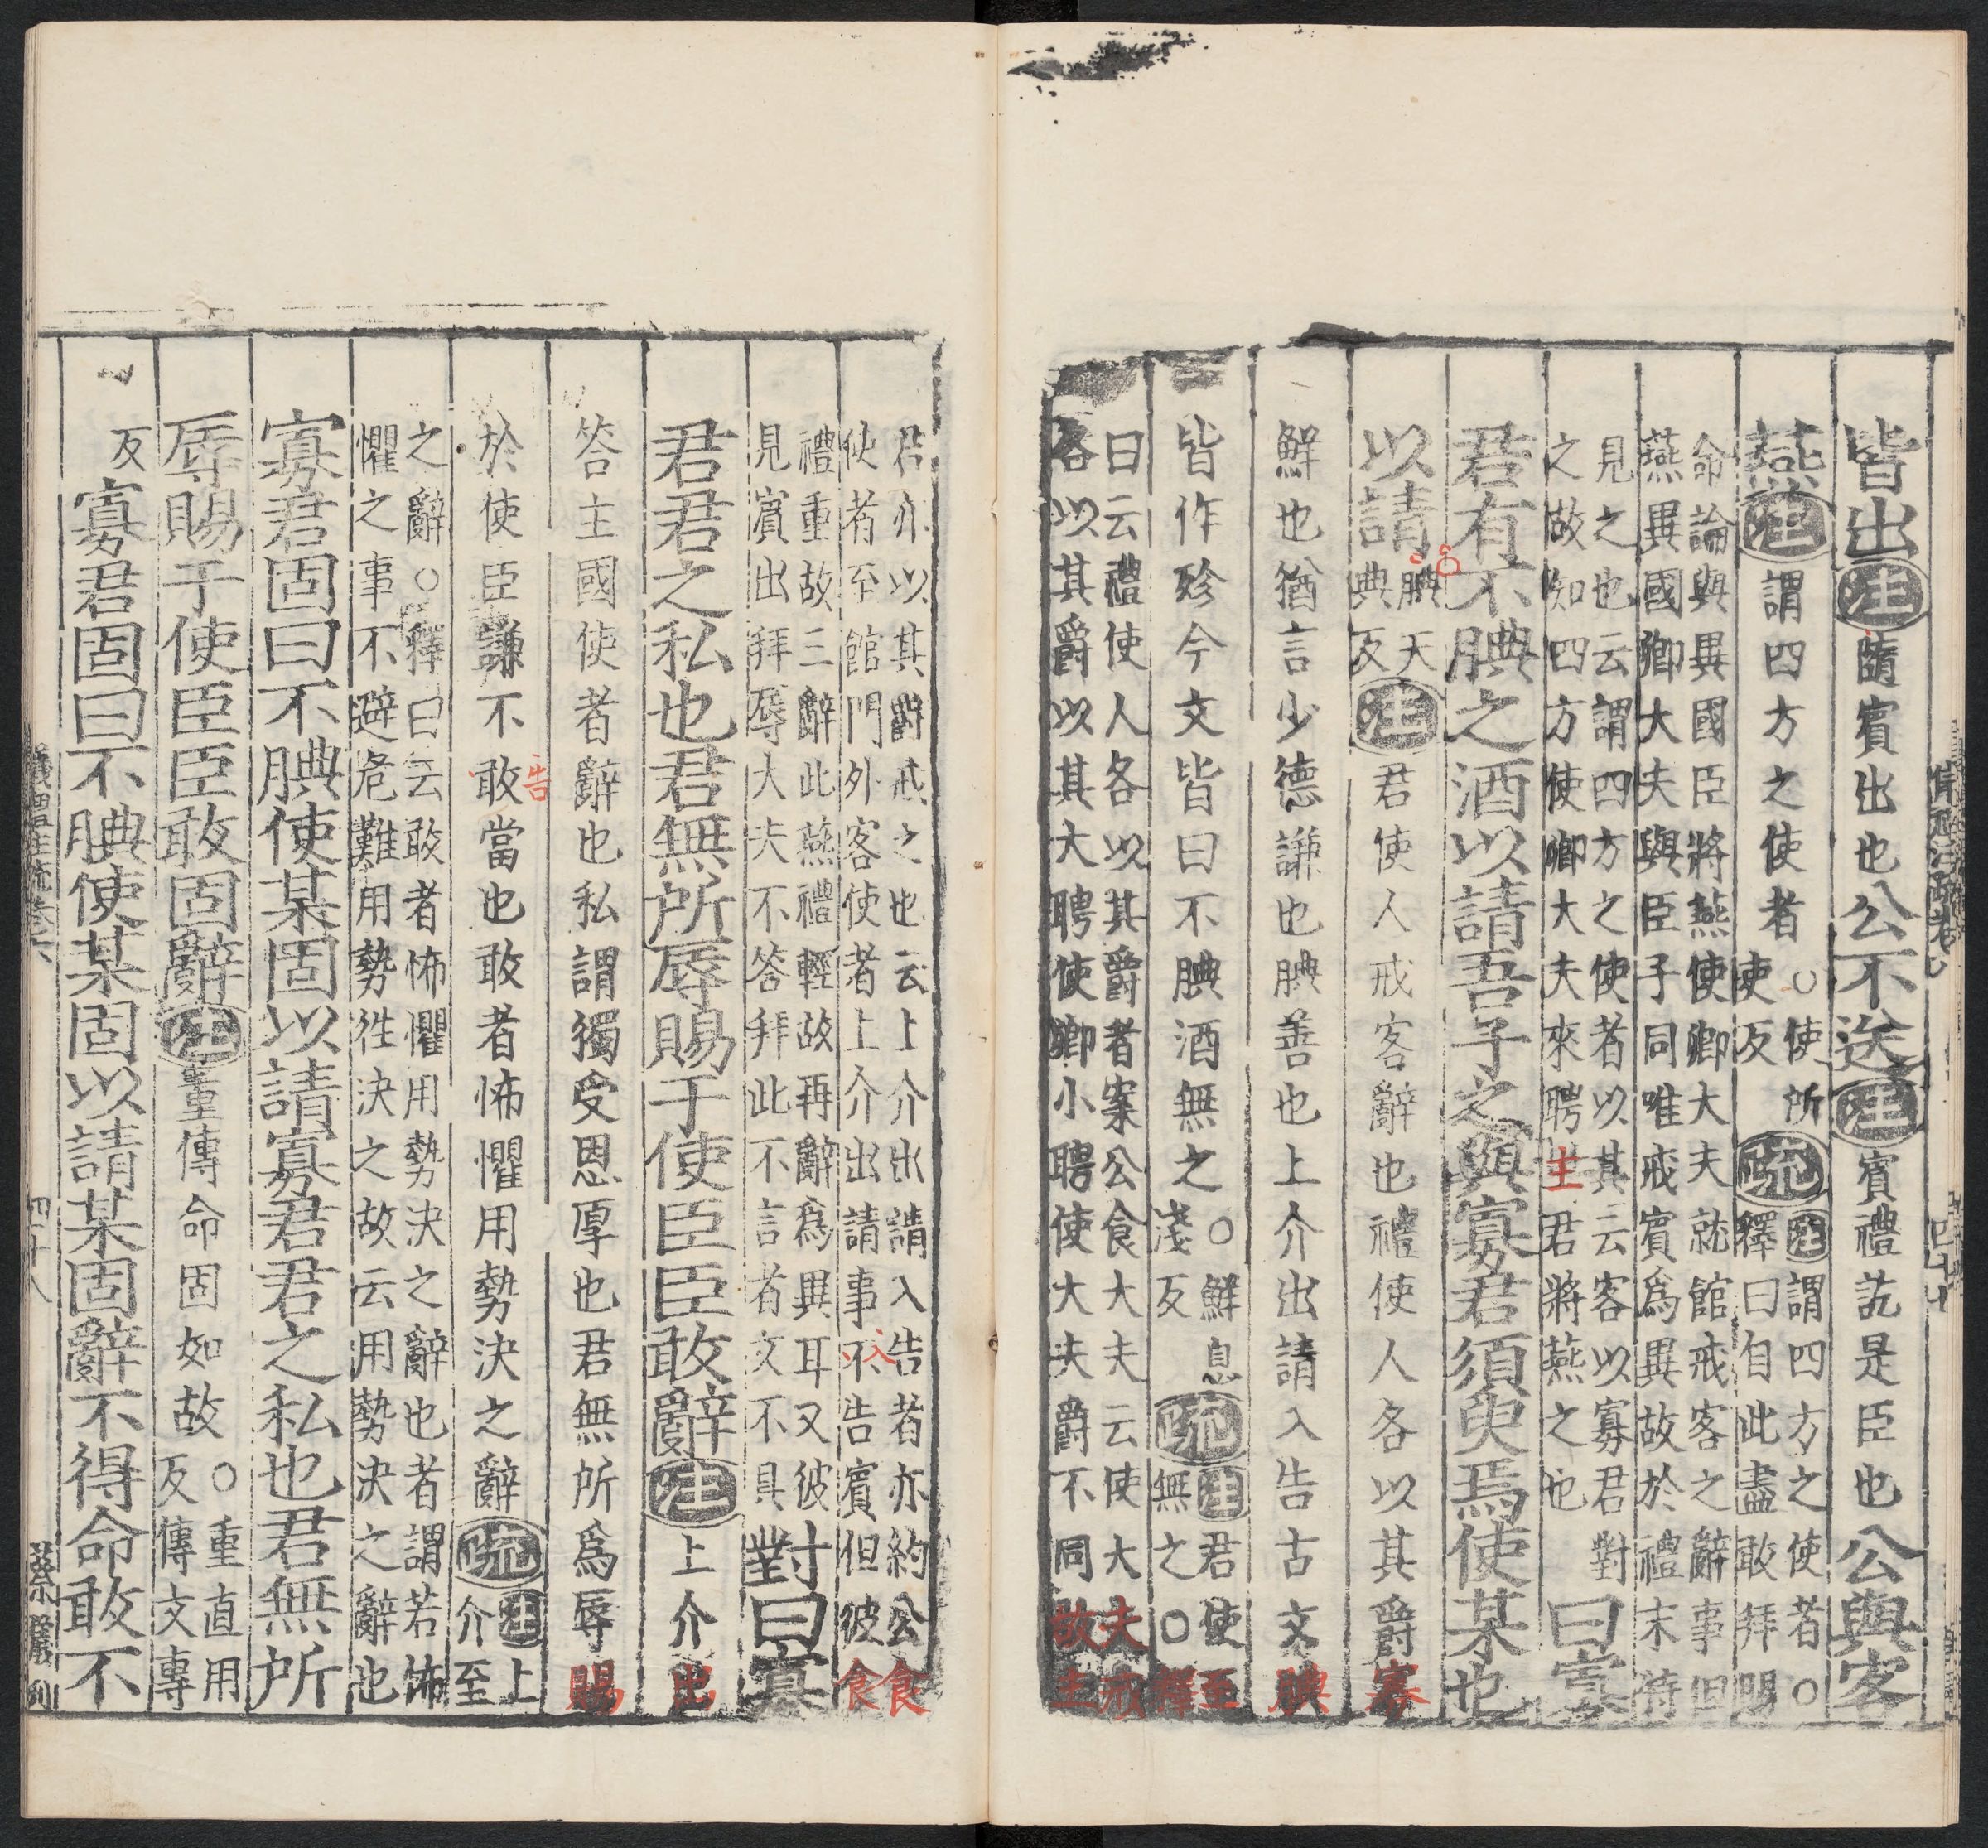 皆出注隨賓出也公不送注賓禮訖是臣也公與客
燕注謂四方之使者○使所
使反疏注謂四方之使者○
釋曰自此盡敢拜賜
命論與異國臣將燕使卿大夫就館戒客之辭事但
燕異國卿大夫與臣子同唯戒賓爲異故於禮末特
見之也云謂四方之使者以其云客以寡君對
之故知四方使卿大夫來聘主君將燕之也
曰寡
君有不腆之酒以請吾子之與寡君須臾焉使某也
以請腆天
典反注君使人戒客辭也禮使人各以其爵寡
鮮也猶言少德謙也腆善也上介出請入告古文腆
皆作殄今文皆曰不腆酒無之○鮮息
淺反疏注君使至
無之○釋
曰云禮使人各以其爵者案公食大夫云使大夫戒
各以其爵以其大聘使卿小聘使大夫爵不同故主
君亦以其爵戒之也云上介出請入告者亦約公食
使者至館門外客使者上介出請事不告賓但彼食
禮重故三辭此燕禮輕故再辭爲異耳又彼
見賓出拜辱大夫不答拜此不言者文不具
對曰寡
君君之私也君無所辱賜于使臣臣敢辭注上介出
答主國使者辭也私謂獨受恩厚也君無所爲辱賜
於使臣謙不敢當也敢者怖懼用勢決之辭疏注上
介至
之辭○釋曰云敢者怖懼用勢決之辭也者謂若怖
懼之事不避危難用勢徃決之故云用勢決之辭也
寡君固曰不腆使某固以請寡君君之私也君無所
辱賜于使臣臣敢固辭注重傳命固如故○重直用
反傳文專
反寡君固曰不腆使某固以請某固辭不得命敢不
四十八